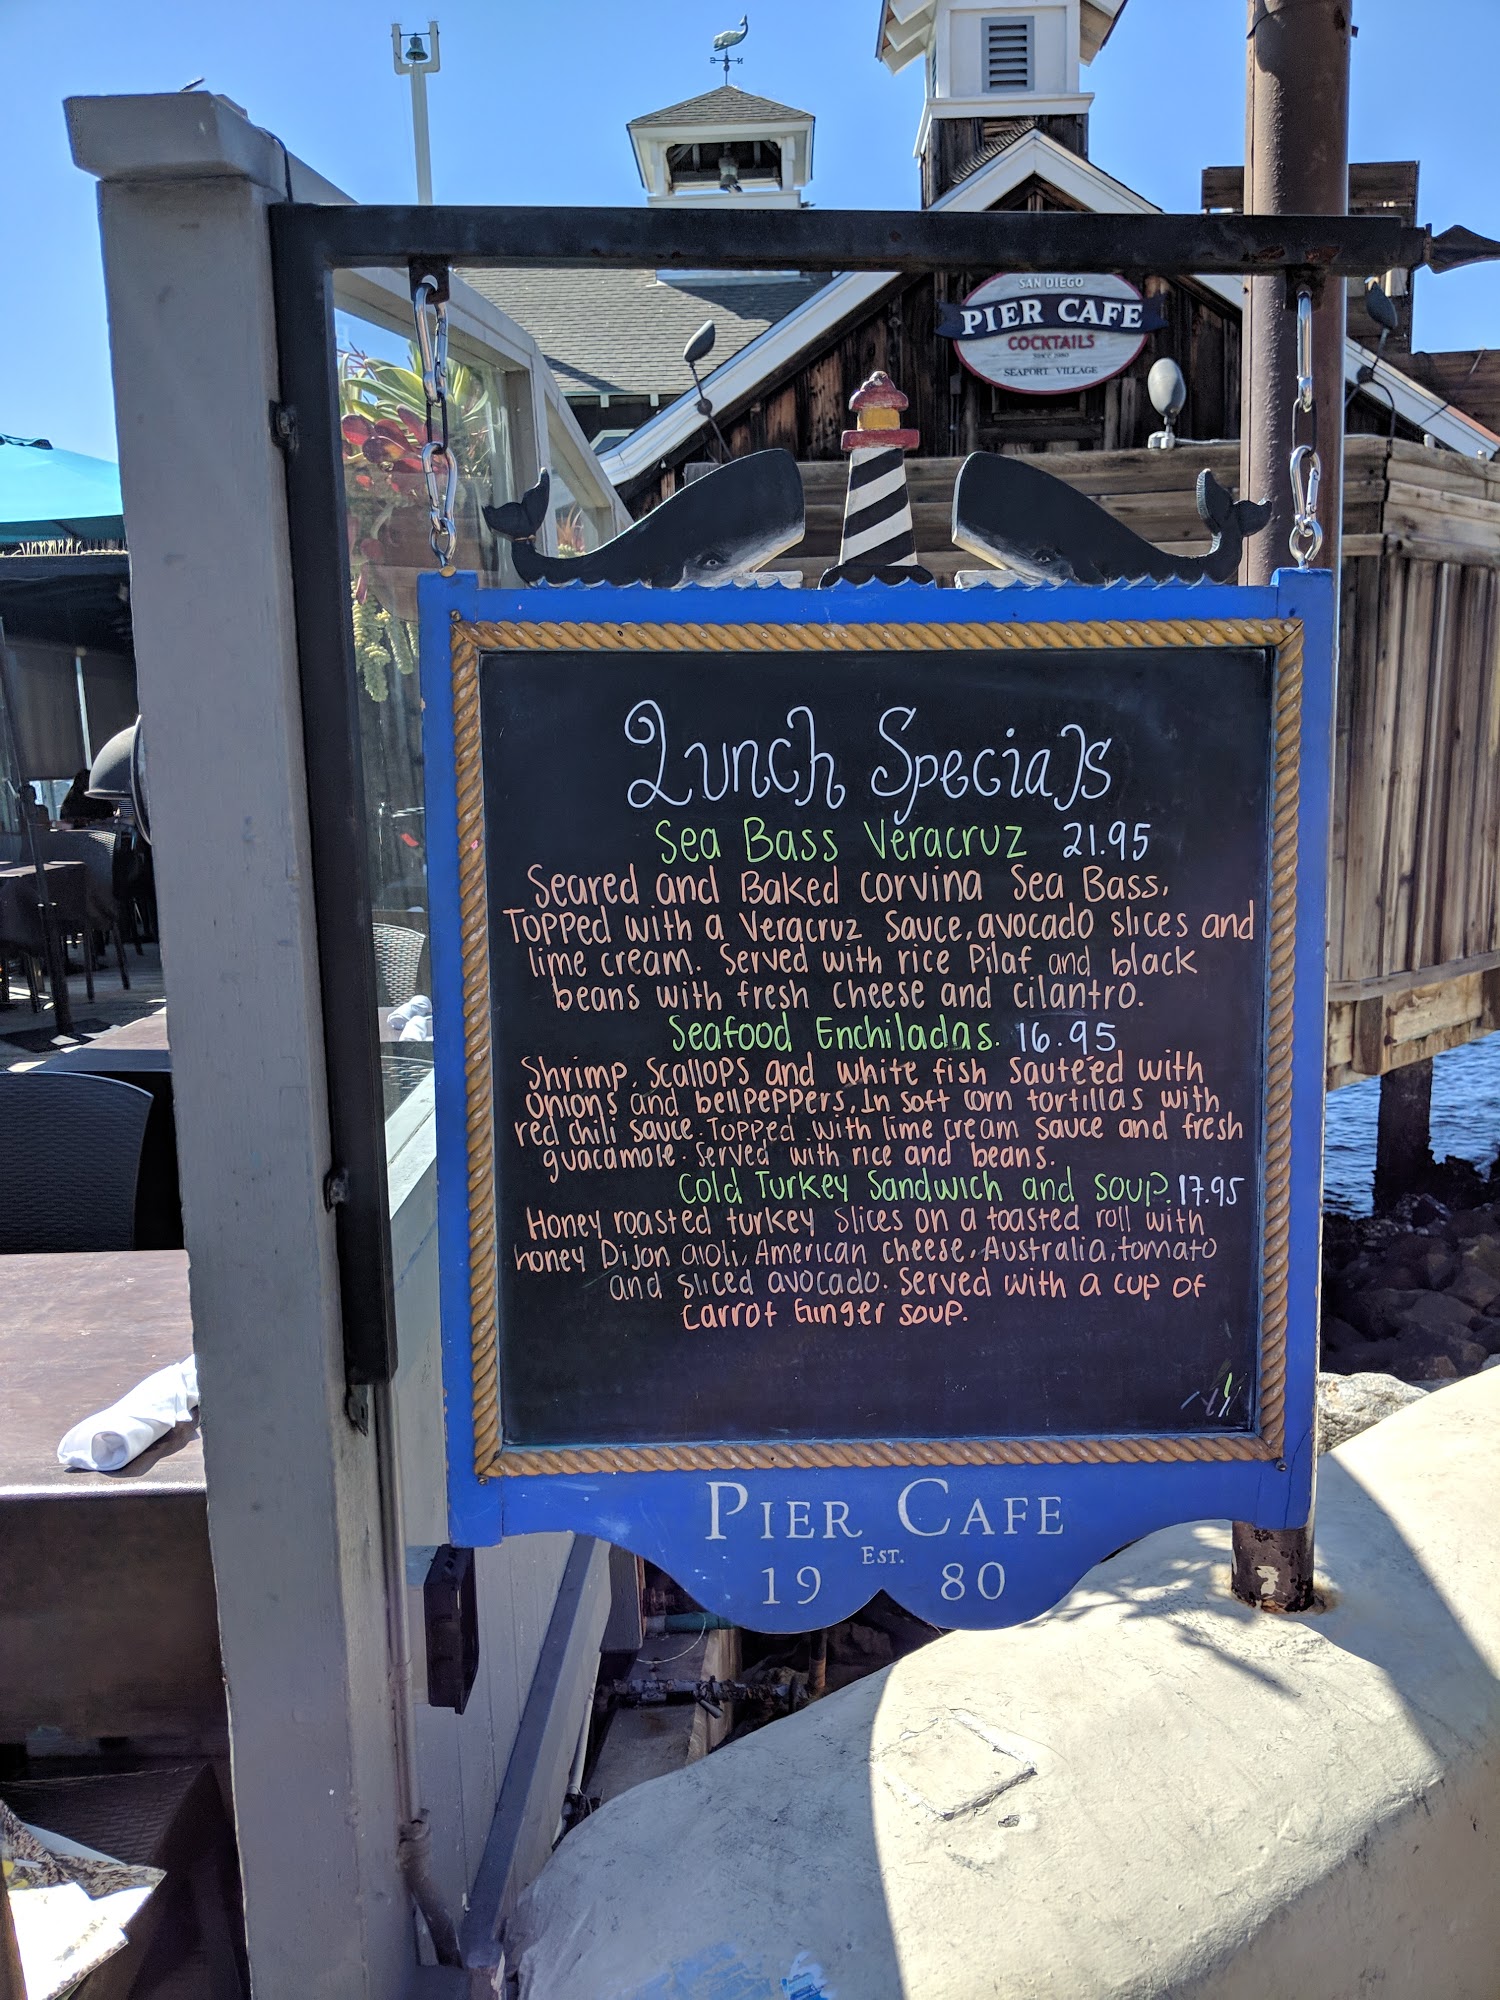 SAN DIEGO
PIER CAFE
COCKTAILS
SINCE 1980
SEAPORT VILLAGE
Lunch Specials
Sea Bass Veracruz 21.95
Seared and Baked corvina Sea Bass,
Topped with a Veracruz Sauce, avocado slices and
lime cream. Served with rice Pilaf and black
beans with fresh cheese and cilantro.
Seafood Enchiladas. 16.95
Shrimp, Scallops and white fish Sauteéd with
Onions and bellpeppers, In soft corn tortillas with
red chili sauce. Topped with lime cream sauce and fresh
guacamole. Served with rice and beans.
Cold Turkey Sandwich and soup. 17.95
Honey roasted turkey slices on a toasted roll with
honey Dijon aioli, American cheese, Australia, tomato
and sliced avocado. Served with a cup of
Carrot Ginger soup.
PIER CAFE
EST.
19 80